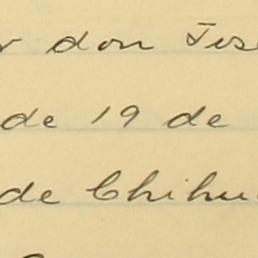 don
de 19 de
de Chihu